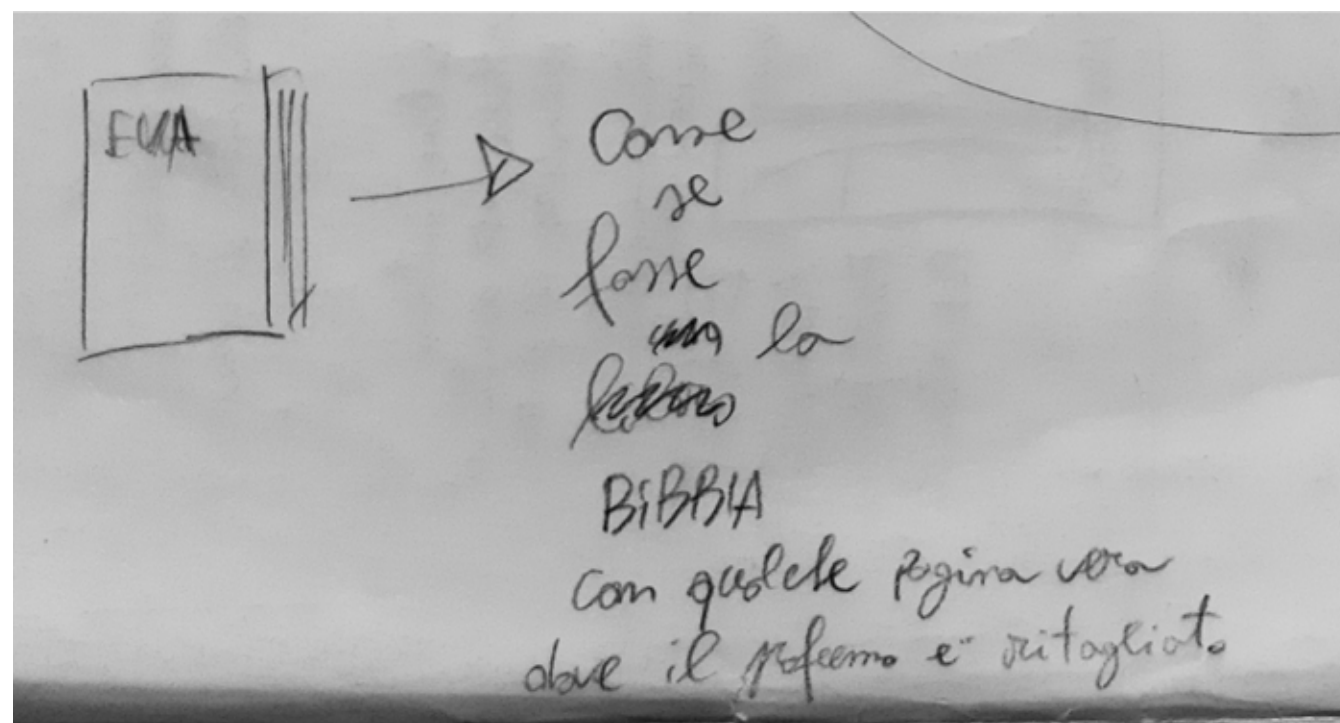 Come
se
fosse
la
BiBBIA
con qualche pagina vera
dove il è ritagliato